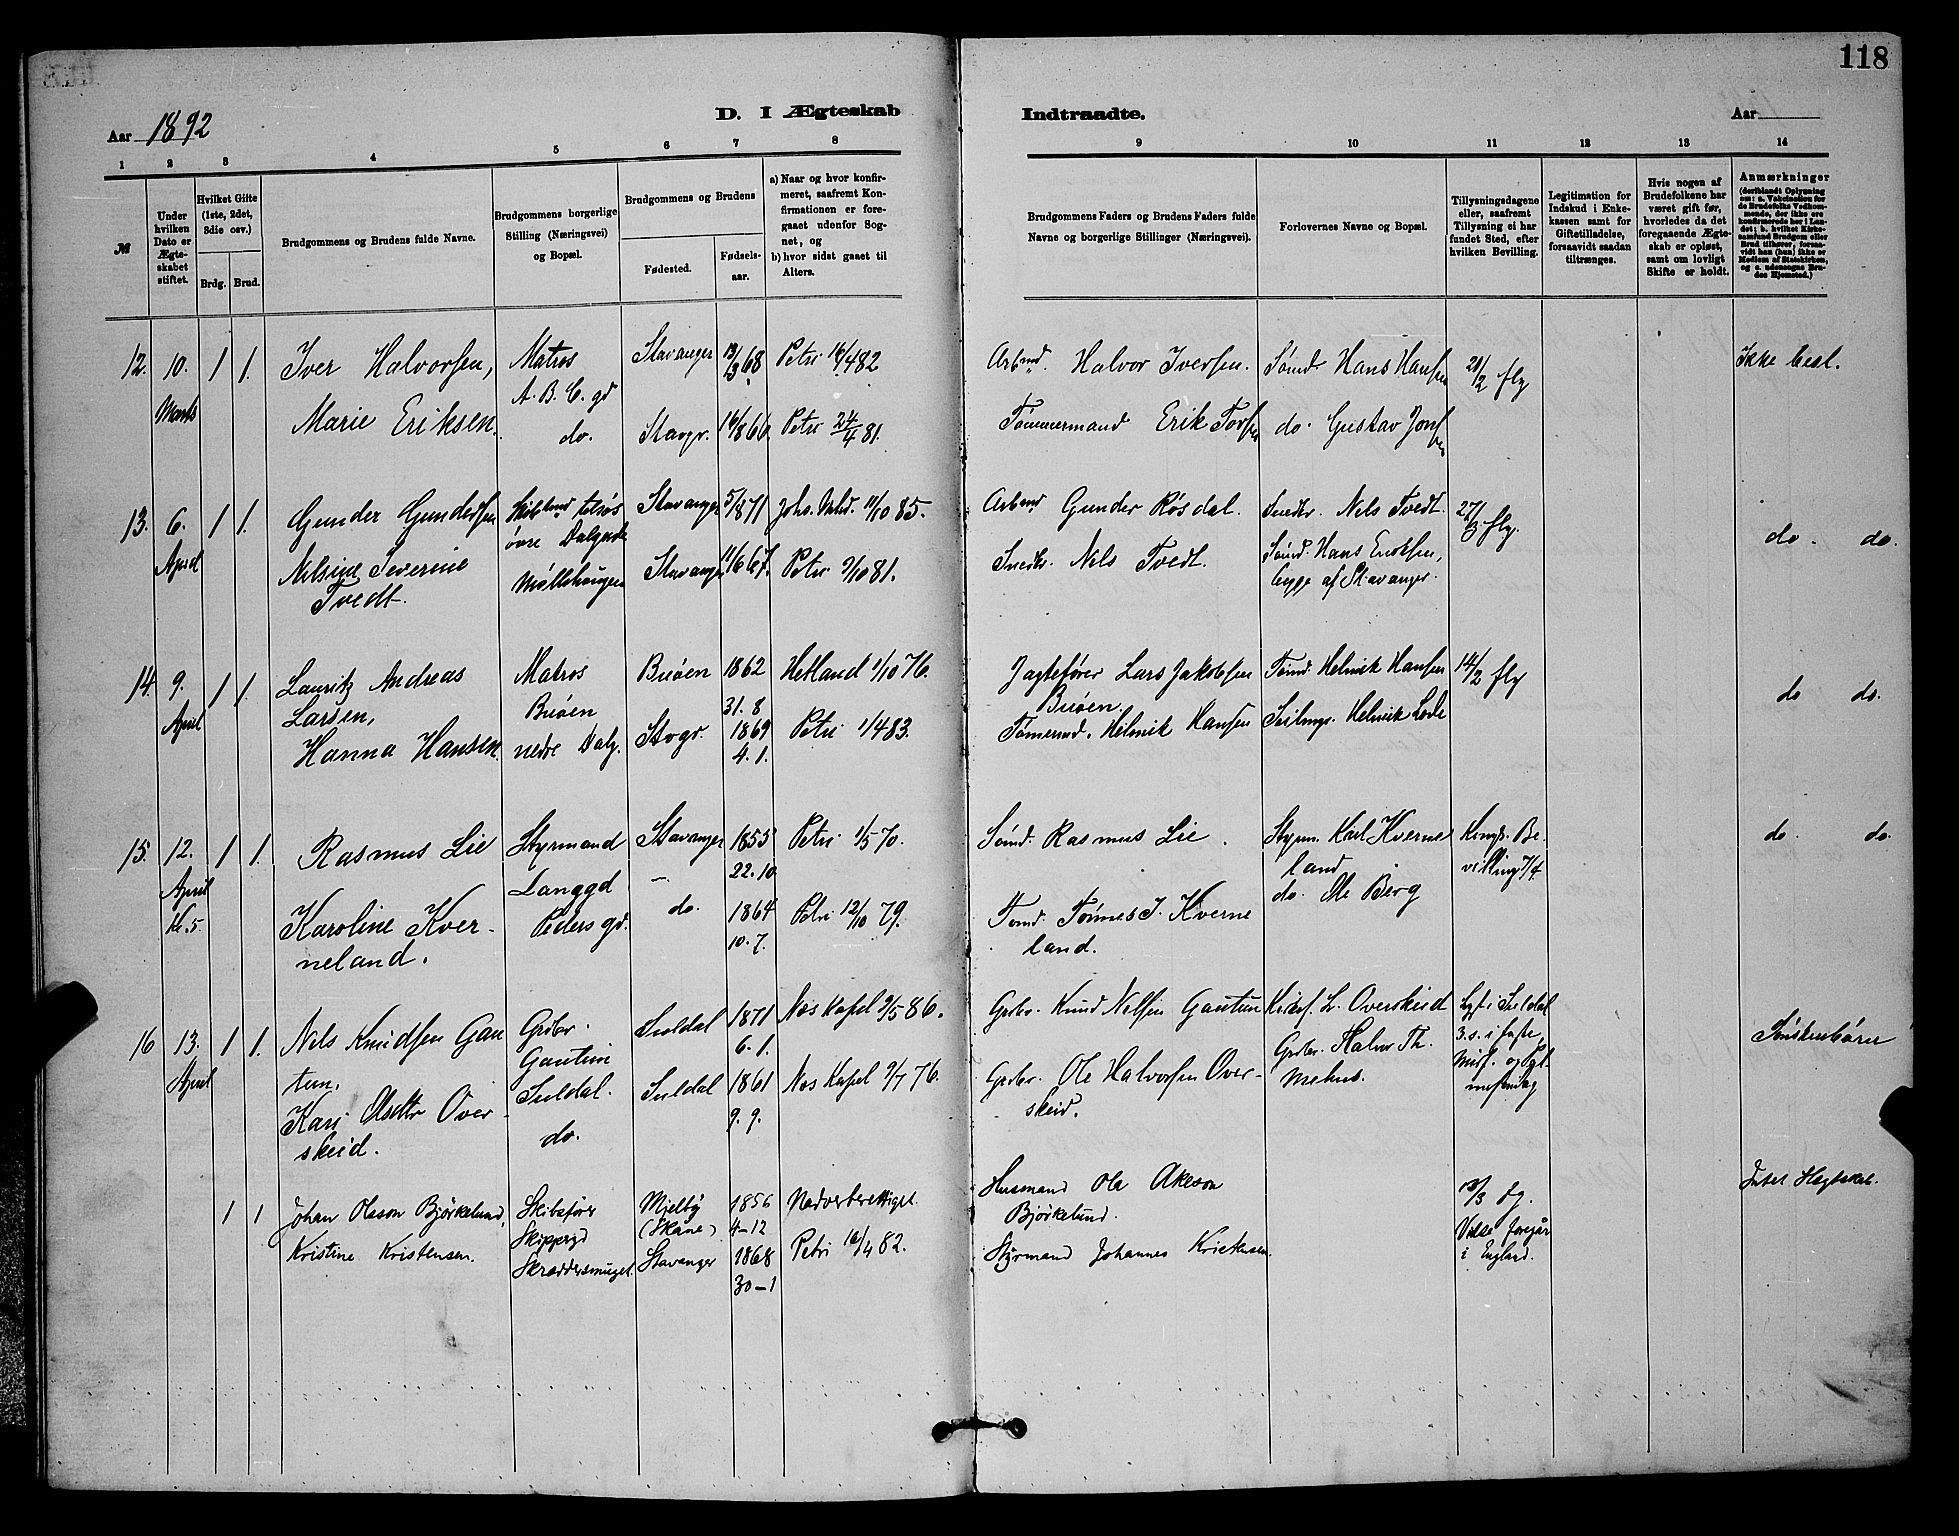 118
Aar 1892
D. I Ægteskab Indtraadte.
Aar
1 2 3 4 5 6 7 8 9 10 11 12 13 14
№
Under hvilken Dato er Ægteskabet stiftet.
Hvilket Gifte (1ste, 2det, 3die osv.)
Brdg. Brud.
Brudgommens og Brudens fulde Navne.
Brudgommens borgerlige Stilling (Næringsvei) og Bopæl.
Brudgommens og Brudens
Fødested.
Fødselsaar.
a) Naar og hvor konfirmeret, saafremt Konfirmationen er foregaaet udenfor Sognet, og
b) hvor sidst gaaet til Alters.
Brudgommens Faders og Brudens Faders fulde Navne og borgerlige Stillinger (Næringsvei).
Forlovernes Navne og Bopæl.
Tillysningsdagene eller, saafremt Tillysning ei har fundet Sted, efter hvilken Bevilling.
Legitimation for Indskud i Enkekassen samt for Giftetilladelse, forsaavidt saadan tiltrænges.
Hvis nogen af Brudefolkene har været gift før, hvorledes da det foregaaende Ægteskab er opløst, samt om lovligt Skifte er holdt.
Anmærkninger (deriblandt Oplysning om: a. Vakcination for de Brudefolks Vedkommende, der ikke ere konfirmerede her i Landet; b. hvilket Kirkesamfund Brudgom eller Brud tilhører, forsaavidt han (hun) ikke er Medlem af Statskirken, og c. udensogns Brudes Hjemsted.)
12. 10. Marts 1 1. Iver Halvorsen, Matros A. B. C. gd Stavanger 13/3 68 Petri 16/4 82 Arbmd. Halvor Iversen. Tømd. Hans Hansen 21/2 flg Ikke besl.
Marie Eriksen. do. Stavgr. 16/8 66 Petri 24/4 81. Tømmermand Erik Torsen do. Gustav Jonsen
13. 6. April 1 1. Gunder Gundersen øvre Dalgade Stavanger 5/8 71 Johs. 11/10 85. Arbmd Gunder Røsdal. Snedkr. Nils Tvedt. 27/3 flg. do. do.
Nilsine Severine Tvedt. Møllehaugen Stavanger 11/6 67. Petri 2/10 81. Snedkr. Nils Tvedt. Tømd. Hans Eriksen, begge af Stavanger.
14. 9. April 1 1. Lauritz Andreas Larsen, Matros Buøen Buøen 1862 31. 8 Hetland 1/10 76. Jagtefører Lars Jakobsen Buøen. Tømd. Helmik Hansen 14/2 flg do do.
Hanna Hansen. nedre Dalg. Stvgr. 1869 4. 1. Petri 1/4 83. Tømermd. Helmik Hansen Seilmgr. Helmik Lode
15. 12. April Kl. 5. 1 1. Rasmus Lie Styrmand Langgd Stavanger 1855 22. 10 Petri 1/5 70. Tømd. Rasmus Lie. Styrm. Karl Kverneland Kongl. Bevilling 7/4. do. do.
Karoline Kverneland. Peders gd. do. 1864 10. 7. Petri 12/10 79. Tømd. Tønnes J. Kverneland. do. Ole Berg
16 13. April 1 1. Nils Knudsen Gautun, Grdbr. Gautun Suldal. Suldal 1871 6. 1. Næs Kapel 9/5 86. Grdbr. Knud Nilsen Gautun Kirkes. L. Overskeid Lyst i Suldal 3. s. i faste,
Kari Olsdtr Overskeid. do. Suldal 1861 9. 9. Næs Kapel 9/7 76. Grdbr. Ole Halvorsen Overskeid. Grdbr. Halvor Th. Mehus. Søskenbørn
1 1 Johan Olsson Bjørkelund, Skibsfører Skippergd Mjelby (Skåne) 1856 4-12 Nadverberettiget. Husmand Ole Akeson Bjørkelund. 13/3 flg. Vielse foregår i England. Intet Slegtskab.
Kristine Kristensen. Skræddersmuget. Stavanger 1868 30-1 Petri 16/4 82. Styrmand Johannes Kristensen.